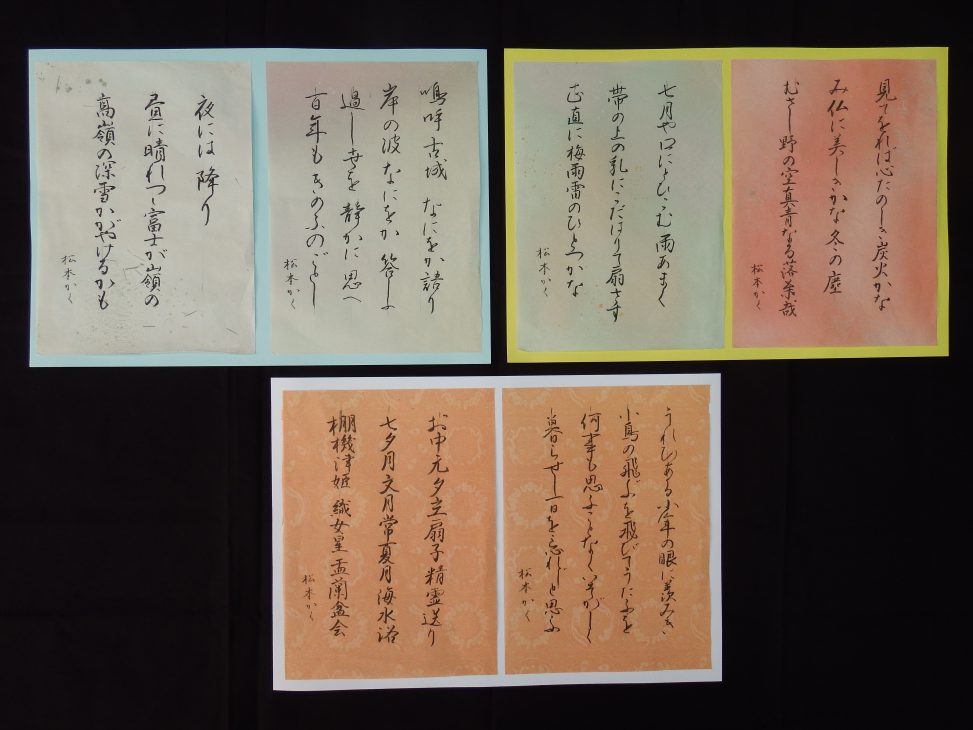 嗚呼古城なにをか語り
岸の波なにをか答ふ
過し世を静かに思へ
百年もきのふのごとし
松本かく
夜には降り
昼に晴れつゝ富士が嶺の
高嶺の深雪かがやけるかも
松本かく
見てをれば心たのしき炭火かな
み仏に美しきかな冬の塵
むさし野の空真青なる落葉哉
松本かく
七月や口にとびこむ雨あまく
帯の上の乳にこだはりて扇さす
正直に梅雨雷のひとつかな
松本かく
うれひある少年の眼に羨みき
小鳥の飛ぶを飛びてうたふを
何事も思ふことなくいそがしく
暮らせし一日を忘れじと思ふ
松本かく
お中元夕立扇子精霊送り
七夕月文月常夏月海水浴
棚機津姫織女星盂蘭盆会
松本かく